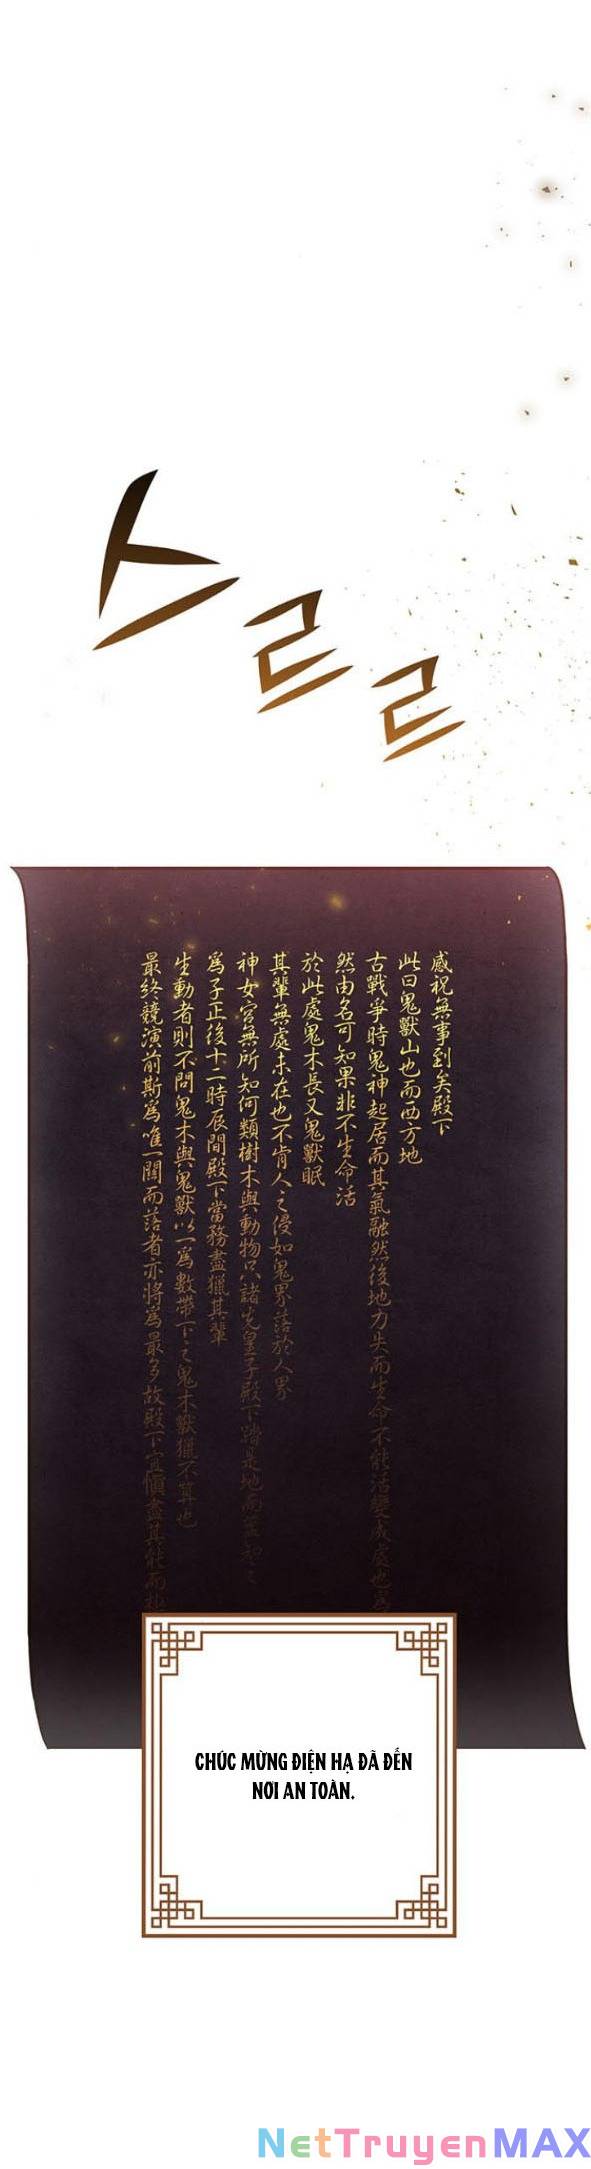 스르르
感祝無事到矣殿下
此曰鬼獸山也而西方地
古戰爭時鬼神起居而其氣融然後地力失而生命不能活變成處也
然由名可知果非不生命活
於此處鬼木長又鬼獸眠
其輩無處未在也不肯人之侵如鬼界落於人界
神女宮無所知何類樹木與動物只諸先皇子殿下踏是地而
爲子正後十二時辰間殿下當務盡獵其輩
生動者則不問鬼木與鬼獸以一爲數帶下之鬼木獸獵不算也
最終競演前斯爲唯一關而落者亦將爲最多故殿下宜愼盡其能而
CHÚC MỪNG ĐIỆN HẠ ĐÃ ĐẾN
NƠI AN TOÀN.
NetTruyenMAX